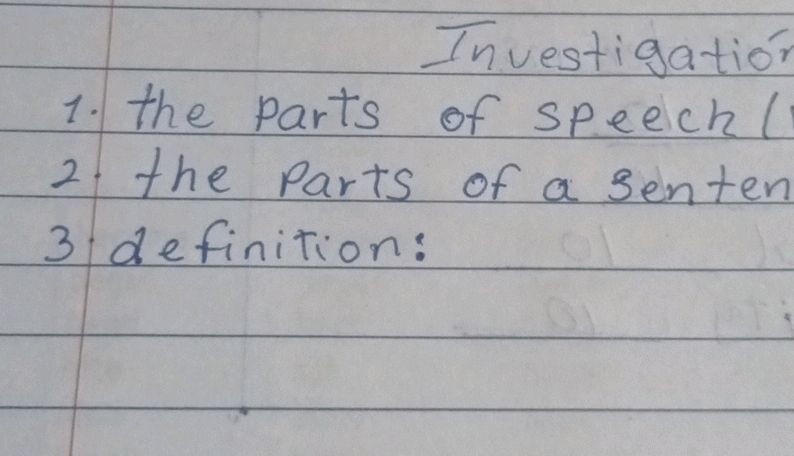 Investigation
1. the parts of speech (
2. the parts of a senten
3. definition: